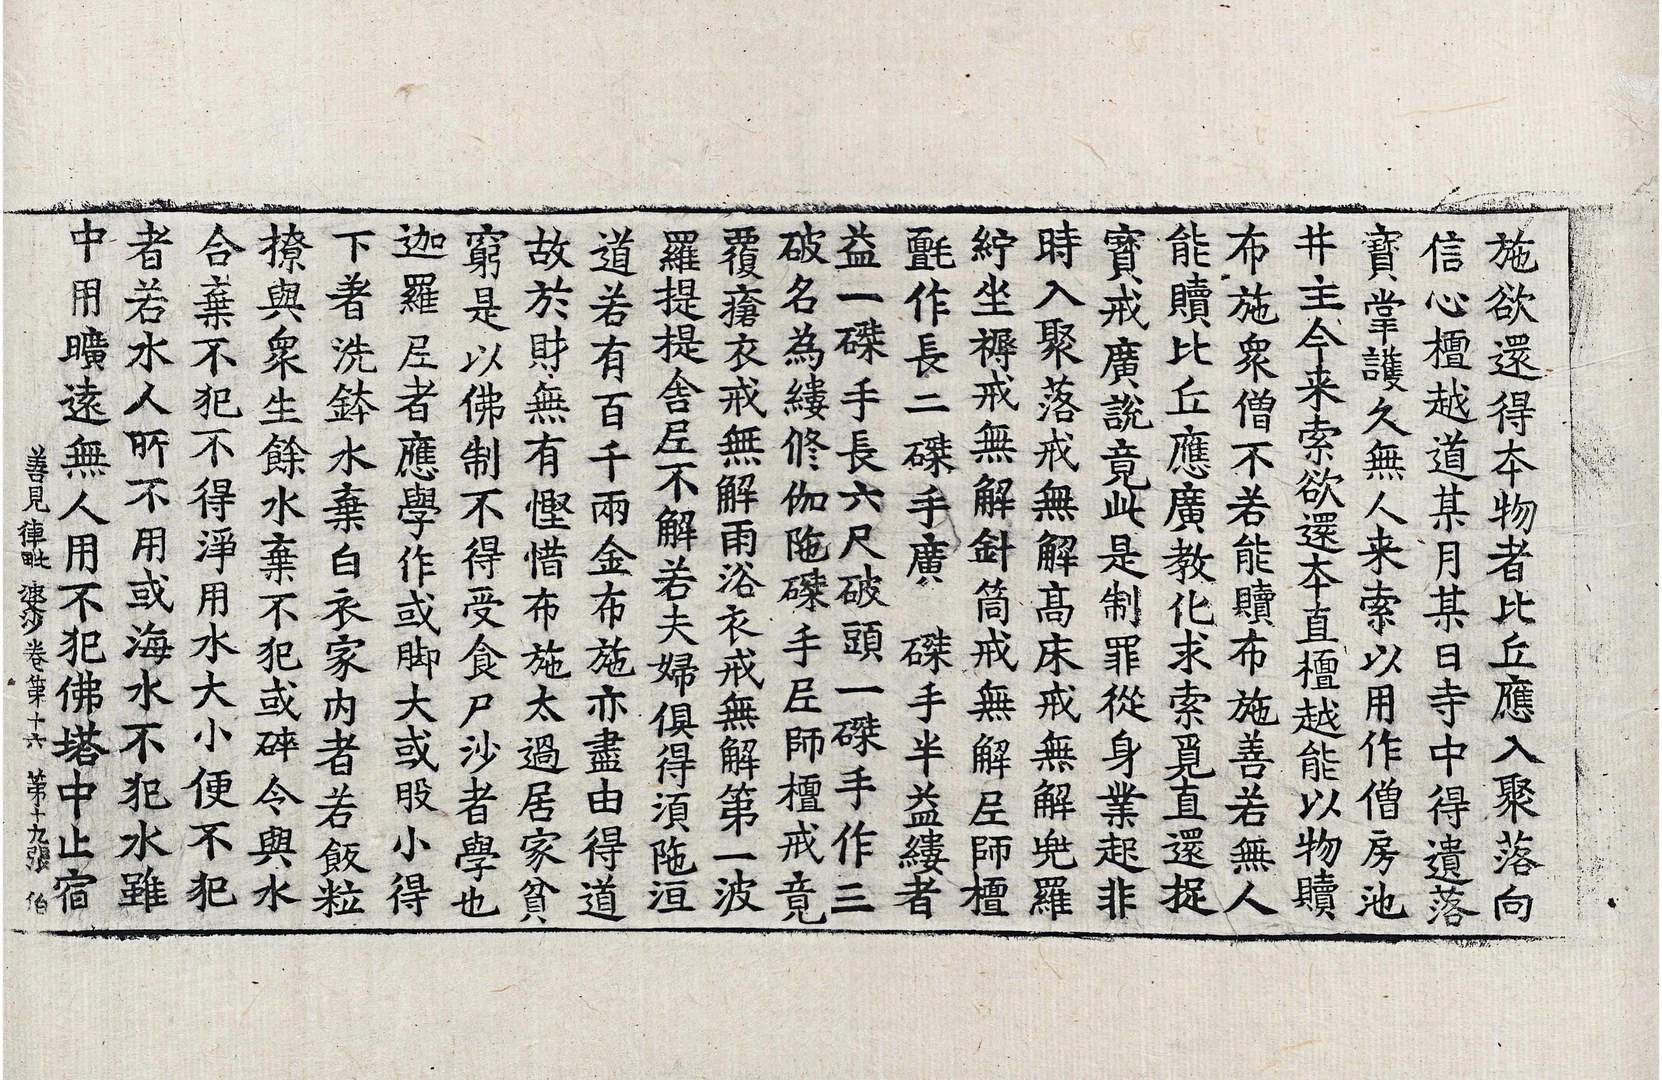 施欲還得本物者比丘應入聚落向
信心檀越道某月某日寺中得遺落
寶掌護久無人来索以用作僧房池
井主今来索欲還本直檀越能以物贖
布施衆僧不若能贖布施善若無人
能贖比丘應廣教化求索覓直還捉
寶戒廣說竟此是制罪從身業起非
時入聚落戒無解高床戒無解兜羅
紵坐褥戒無解針筒戒無解尼師檀
氎作長二磔手廣一磔手半益縷者
益一磔手長六尺破頭一磔手作三
破名為縷修伽陁磔手尼師檀戒竟
覆瘡衣戒無解雨浴衣戒無解第一波
羅提提舍尼不解若夫婦俱得湏陁洹
道若有百千兩金布施亦盡由得道
故於財無有慳惜布施太過居家貧
窮是以佛制不得受食尸沙者學也
迦羅尼者應學作或脚大或股小得
下著洗鉢水棄白衣家內者若飯粒
撩與衆生餘水棄不犯或碎令與水
合棄不犯不得淨用水大小便不犯
者若水人所不用或海水不犯水雖
中用曠遠無人用不犯佛塔中止宿
善見律毗婆沙卷第十六 第十九張 伯